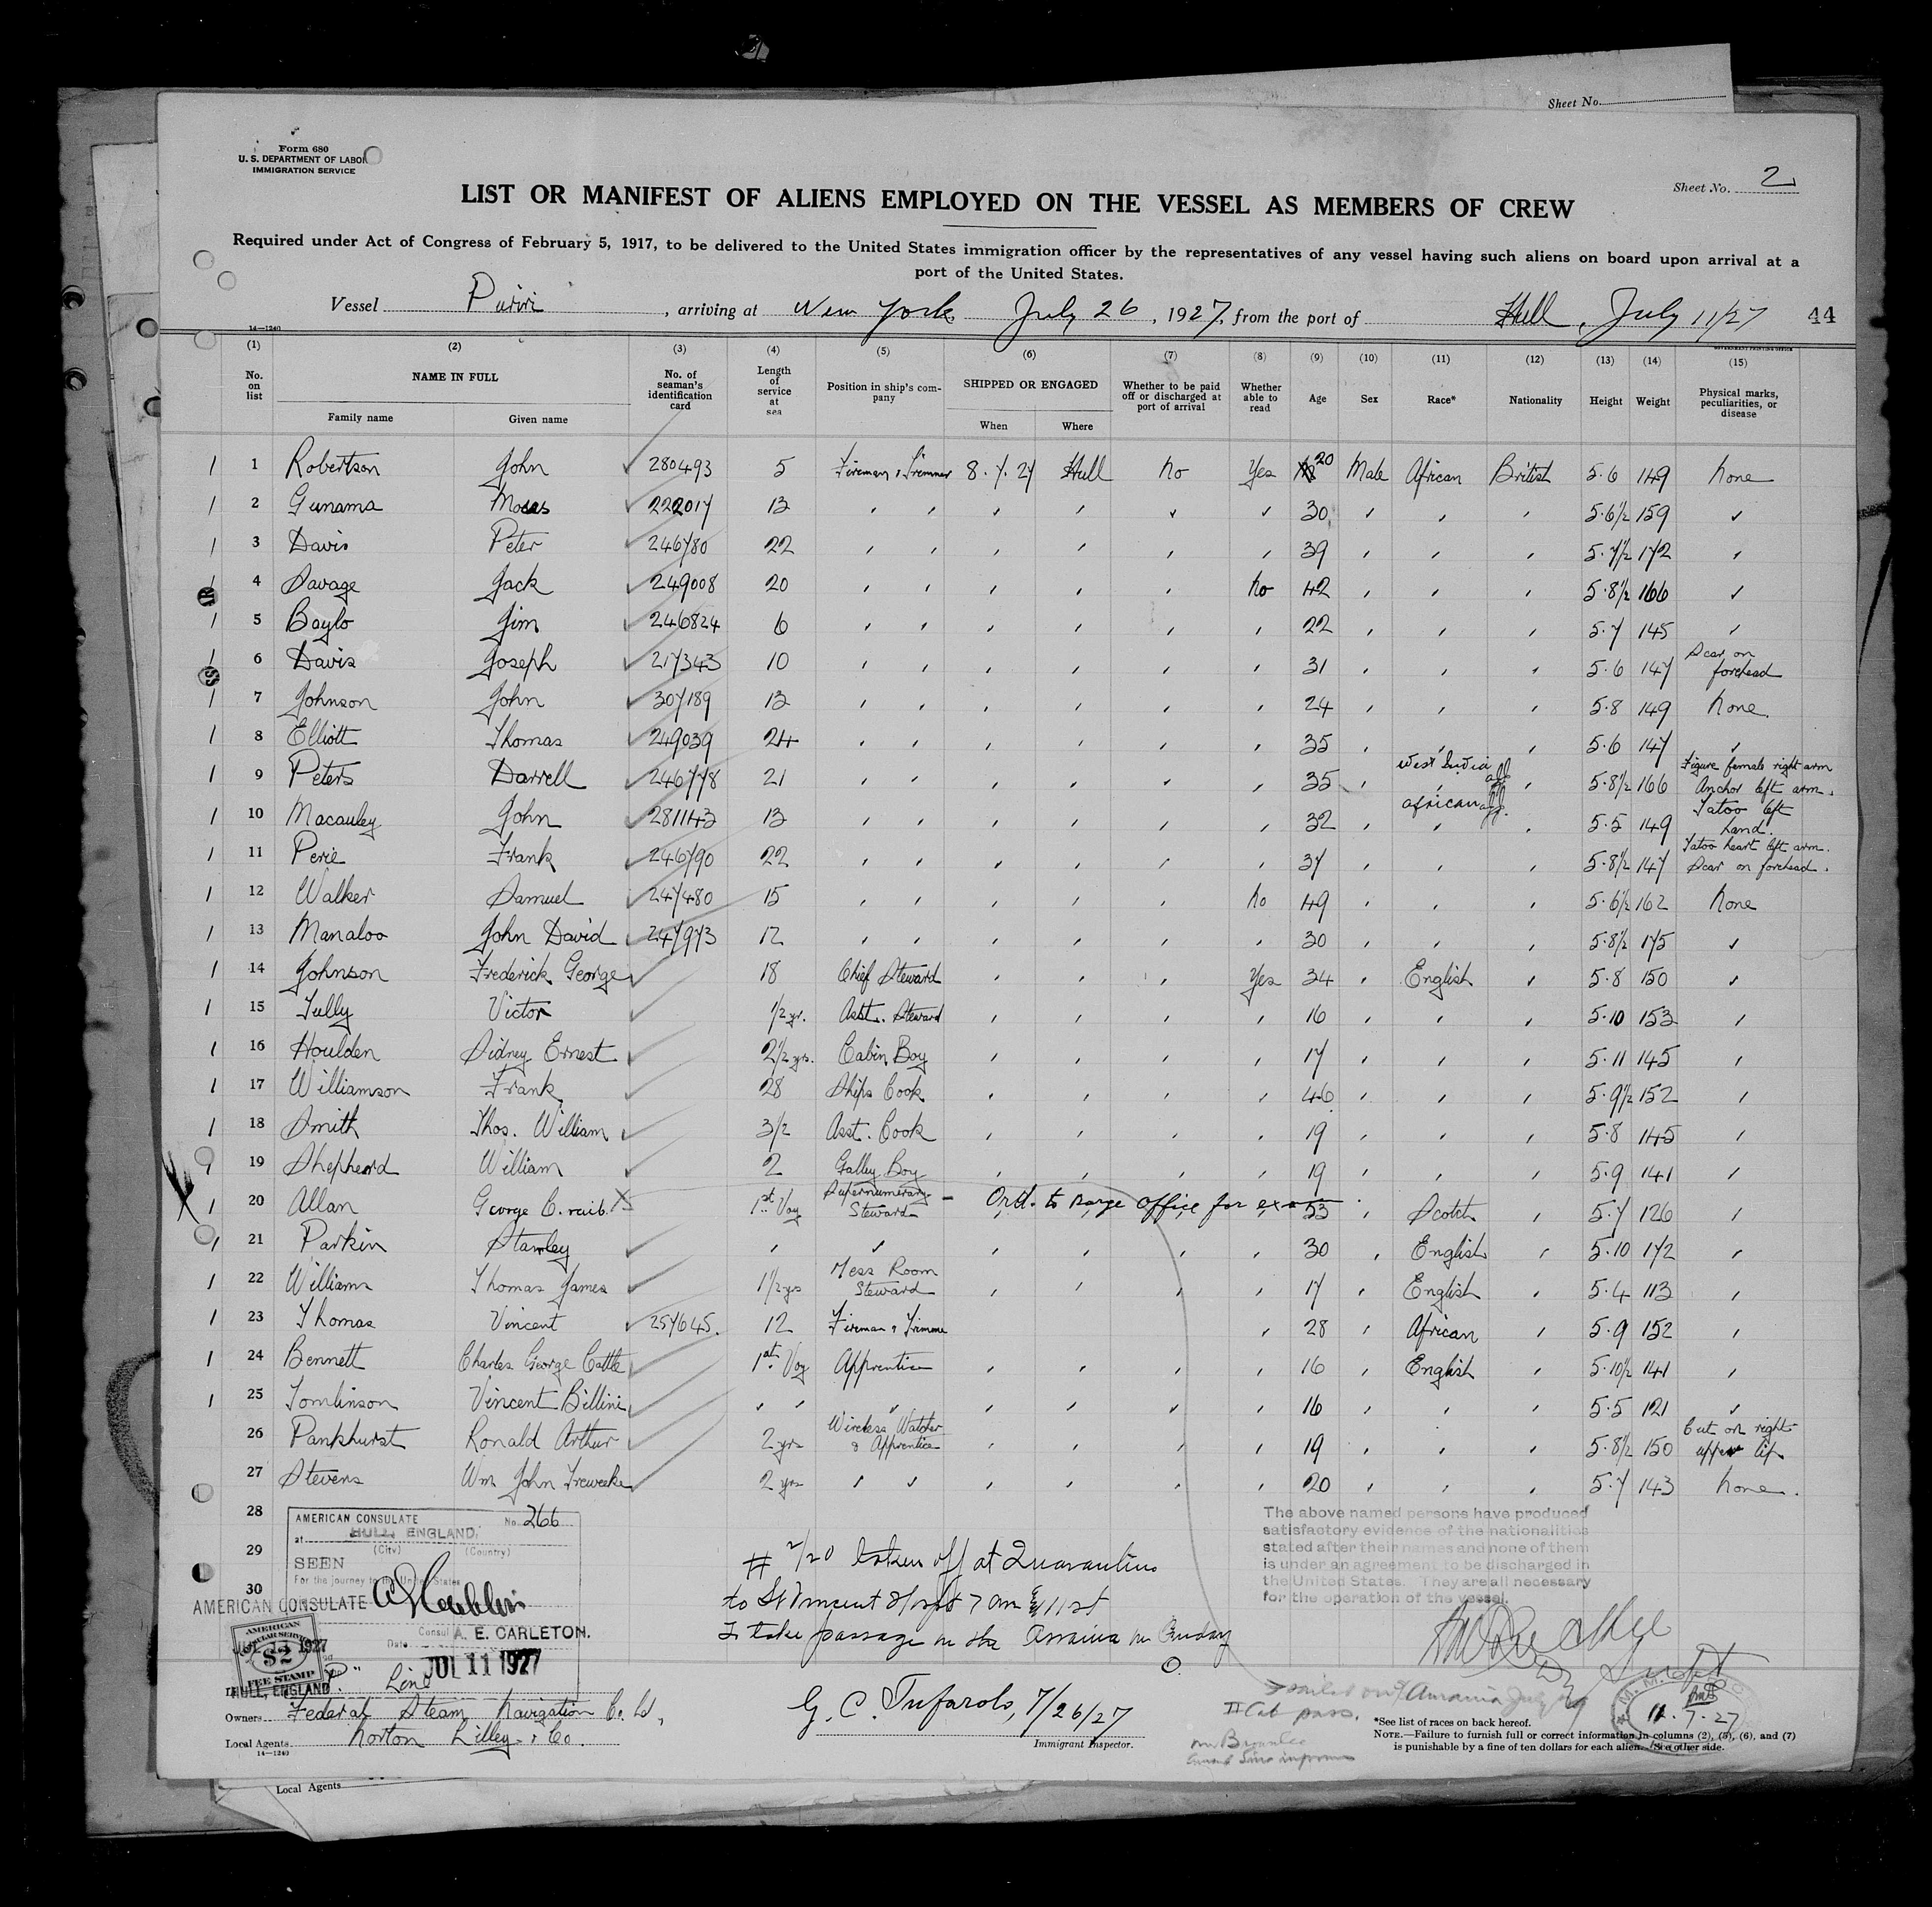 Sheet No.
Form 680
U. S. DEPARTMENT OF LABOR
IMMIGRATION SERVICE
Sheet No. 2
LIST OR MANIFEST OF ALIENS EMPLOYED ON THE VESSEL AS MEMBERS OF CREW
Required under Act of Congress of February 5, 1917, to be delivered to the United States immigration officer by the representatives of any vessel having such aliens on board upon arrival at a
port of the United States.
Vessel , arriving at New York July 26, 1927, from the port of Hull, July 11/27 44
14—1240
(1) (2) (3) (4) (5) (6) (7) (8) (9) (10) (11) (12) (13) (14) (15)
No. on list NAME IN FULL Family name Given name No. of seaman's identification card Length of service at sea Position in ship's company SHIPPED OR ENGAGED When Where Whether to be paid off or discharged at port of arrival Whether able to read Age Sex Race* Nationality Height Weight Physical marks, peculiarities, or disease
1 Robertson John 280493 5 Fireman & Trimmer 8.7.27 Hull No Yes 20 Male African British 5.6 149 None
2 Gunama Moses 222017 13 " " " " " " 30 " " " 5.6½ 159 "
3 Davis Peter 246780 22 " " " " " " 39 " " " 5.7½ 172 "
4 Savage Jack 249008 20 " " " " " No 42 " " " 5.8½ 166 "
5 Baylo Jim 246824 6 " " " " " " 22 " " " 5.7 145 "
6 Davis Joseph 217343 10 " " " " " " 31 " " " 5.6 147 Scar on forehead
7 Johnson John 307189 13 " " " " " " 24 " " " 5.8 149 None
8 Elliott Thomas 249039 24 " " " " " " 35 " " " 5.6 147 "
9 Peters Darrell 246778 21 " " " " " " 35 " West India " 5.8½ 166 Figure female right arm Anchor left arm.
10 Macauley John 281143 13 " " " " " " 32 " African " 5.5 149 Tatoo left hand.
11 Perie Frank 246790 22 " " " " " " 37 " " " 5.8½ 147 Tatoo heart left arm. Scar on forehead.
12 Walker Samuel 247480 15 " " " " " No 49 " " " 5.6½ 162 None
13 Manaloo John David 247973 12 " " " " " " 30 " " " 5.8½ 175 "
14 Johnson Frederick George 18 Chief Steward " " " Yes 34 " English " 5.8 150 "
15 Tully Victor 1/2 yr. Asst. Steward " " " " 16 " " " 5.10 153 "
16 Houlden Sidney Ernest 2½ yrs. Cabin Boy " " " " 17 " " " 5.11 145 "
17 Williamson Frank 28 Ships Cook " " " " 46 " " " 5.9½ 152 "
18 Smith Thos. William 3½ Asst. Cook " " " " 19 " " " 5.8 145 "
19 Shepherd William 2 Galley Boy " " " " 19 " " " 5.9 141 "
20 Allan George C. 1st Voy Supernumerary Steward - Ord. to barge office for exam 53 " Scotch " 5.7 126 "
21 Parkin Stanley " " " " " " 30 " English " 5.10 172 "
22 Williams Thomas James 1½ yrs Mess Room Steward " " " " 17 " English " 5.4 113 "
23 Thomas Vincent 257645. 12 Fireman & Trimme " 28 " African " 5.9 152 "
24 Bennett Charles George Cattle 1st Voy Apprentice " " " " 16 " English " 5.10½ 141 "
25 Tomlinson Vincent Billini " " " " " " " 16 " " " 5.5 121 "
26 Pankhurst Ronald Arthur 2 yrs Wireless Watcher & Apprentice " " " " 19 " " " 5.8½ 150 Cut on right upper lip
27 Stevens Wm John Treweeke 2 yrs " " " " " " 20 " " " 5.7 143 None.
28
29
30
AMERICAN CONSULATE No. 266
at HULL, ENGLAND.
(City) (Country)
SEEN
For the journey to the United States
AMERICAN CONSULATE
Consul A. E. CARLETON.
Date JUL 11 1927
AMERICAN
CONSULAR SERVICE
$2
FEE STAMP
HULL, ENGLAND
# 2/20 taken off at Quarantine
to St Vincent
to take passage on the
The above named persons have produced
satisfactory evidence of the nationalities
stated after their names and none of them
is under an agreement to be discharged in
the United States. They are all necessary
for the operation of the vessel.
"P." Line
Owners Federal Steam Navigation Co. Ld,
Local Agents Norton Lilley & Co.
14—1240
7/26/27
Immigrant Inspector.
II Cab pass.
11.7.27
*See list of races on back hereof.
NOTE.—Failure to furnish full or correct information in columns (2), (5), (6), and (7)
is punishable by a fine of ten dollars for each alien. See other side.
Local Agents